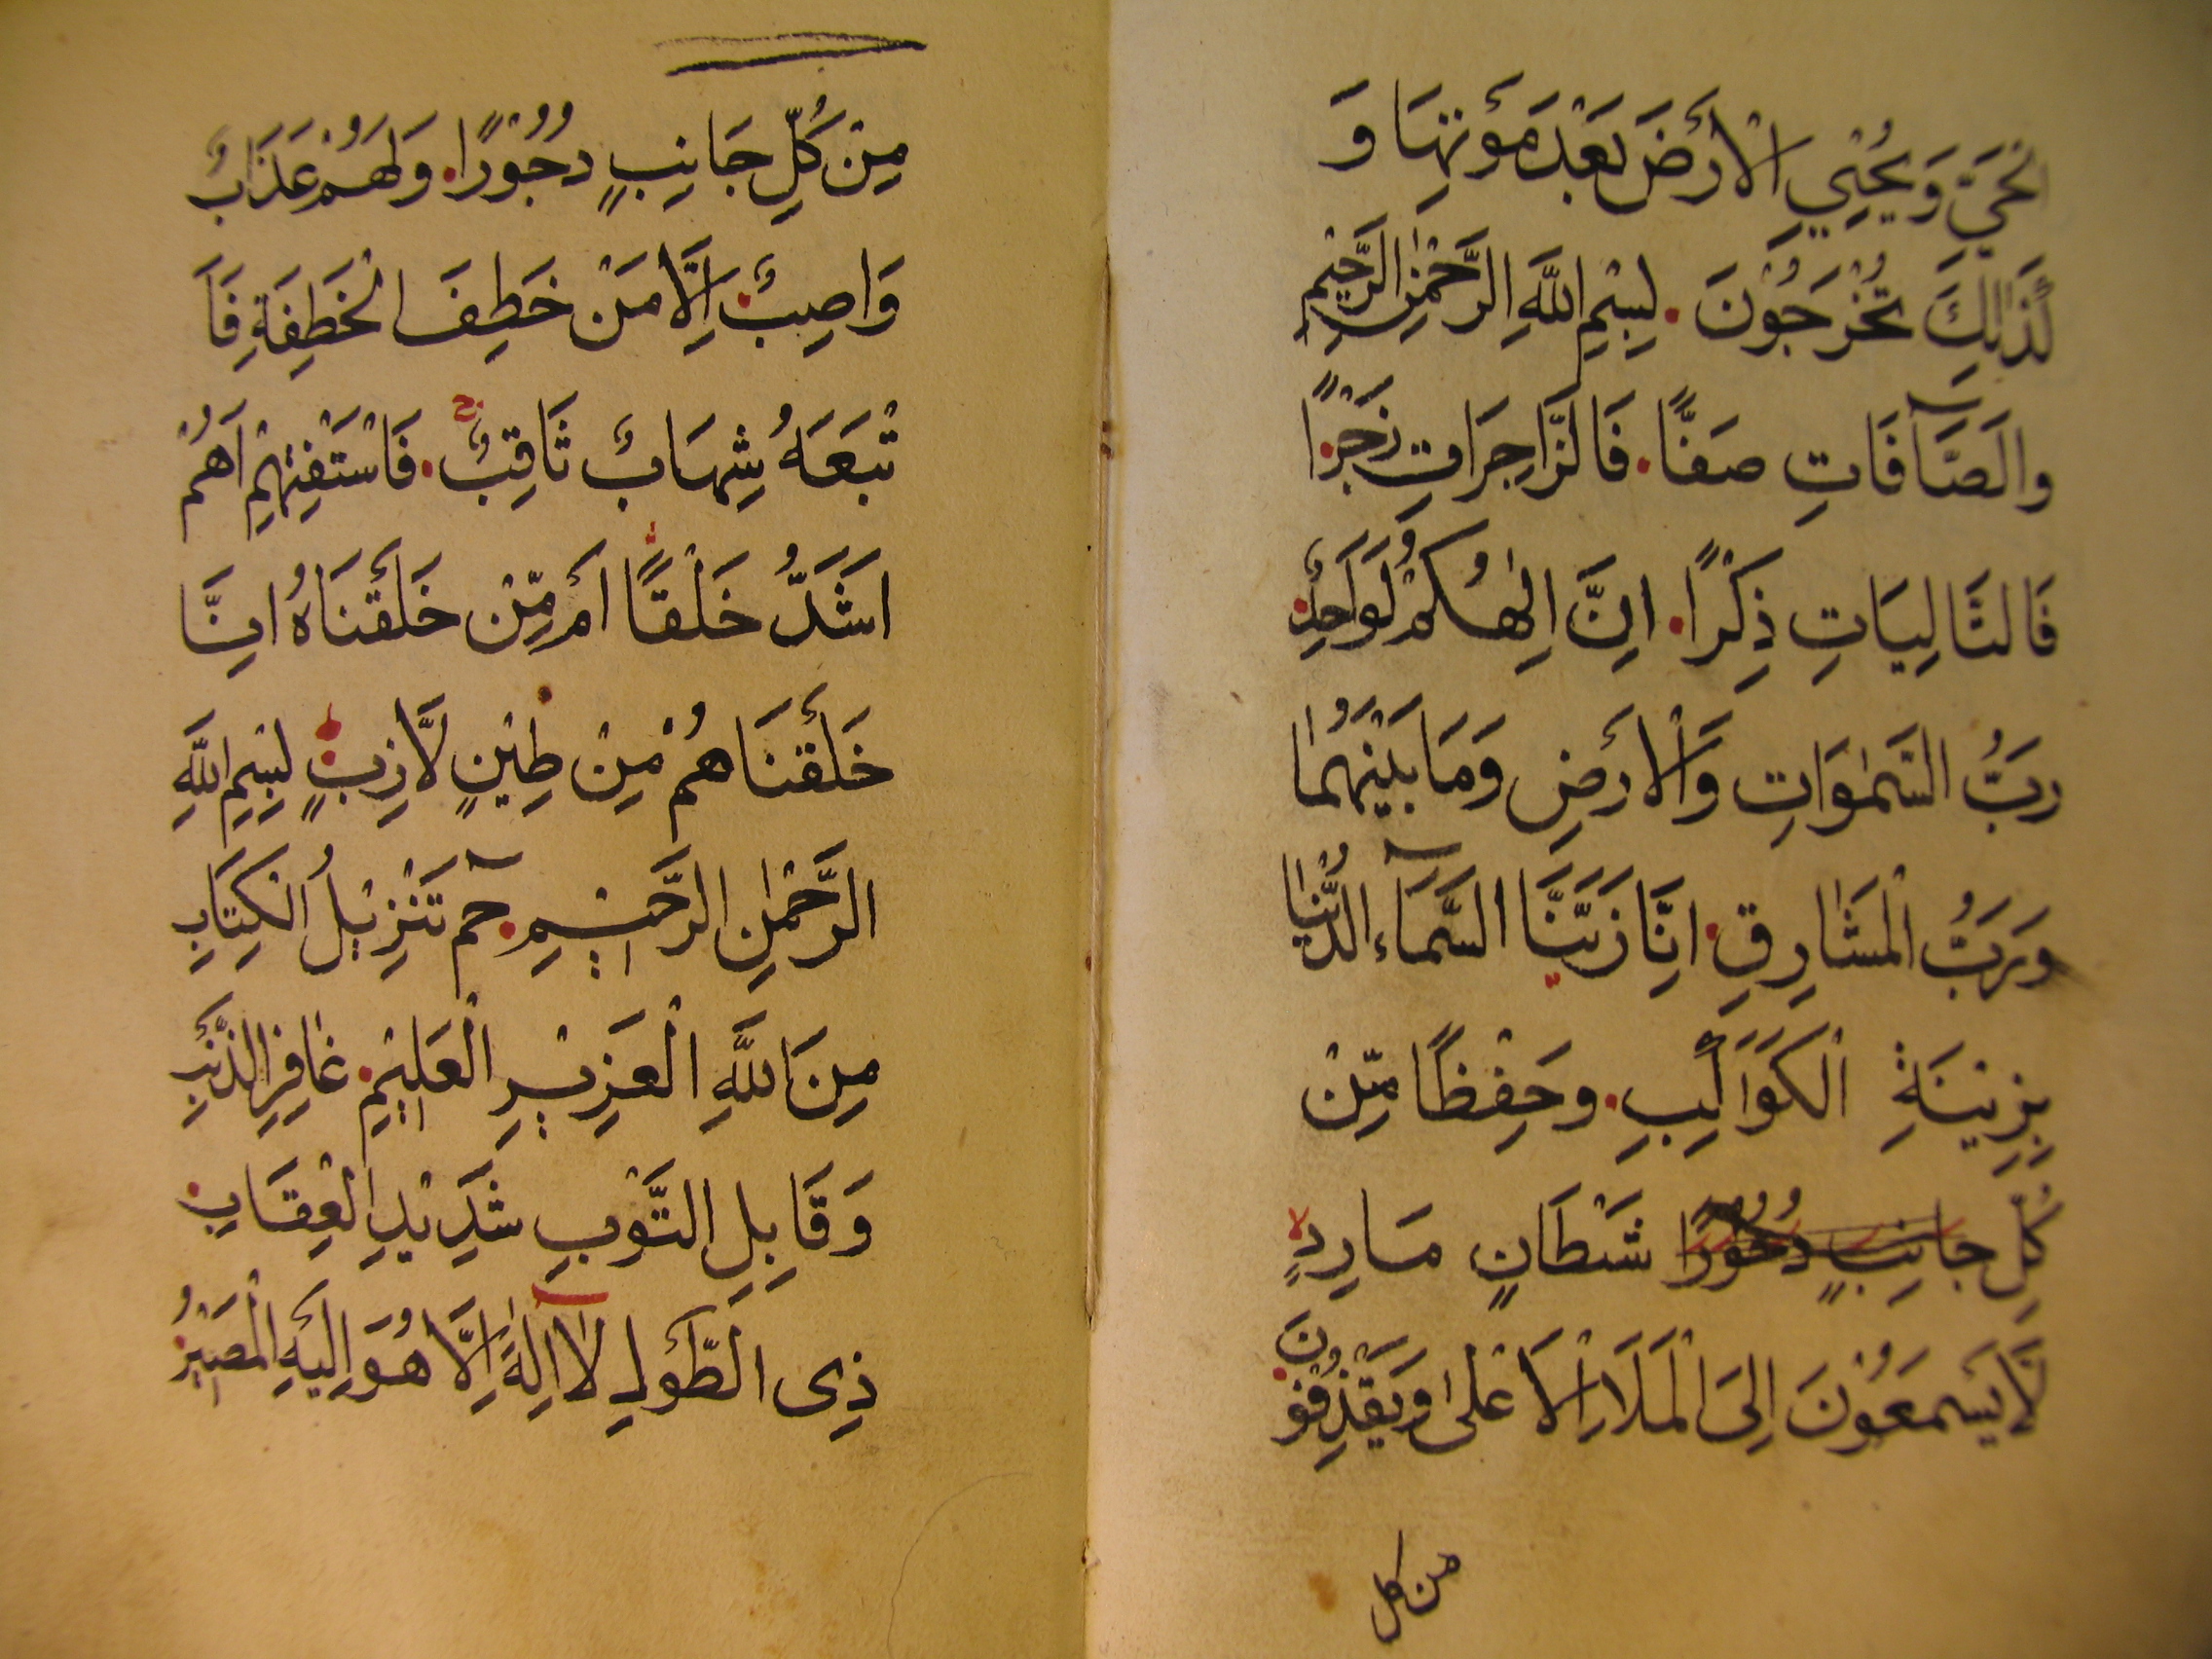 الْحَيِّ وَيُحْيِي الْأَرْضَ بَعْدَ مَوْتِهَا وَ
كَذَالِكَ تُخْرَجُوْنَ. بِسْمِ اللَّهِ الرَّحْمٰنِ الرَّحِيْمِ
وَالصَّآفَّاتِ صَفًّا. فَالزَّاجِرَاتِ زَجْرًا
فَالتَّالِيَاتِ ذِكْرًا. اِنَّ اِلٰهَكُمْ لَوَاحِدٌ.
رَبُّ السَّمٰوَاتِ وَالْأَرْضِ وَمَا بَيْنَهُمَا
وَرَبُّ الْمَشَارِقِ. اِنَّا زَيَّنَّا السَّمَآءَ الدُّنْيَا
بِزِيْنَةِ الْكَوَاكِبِ. وَحِفْظًا مِّنْ
كُلِّ جانِبٍ دُحُوْرًا شَيْطَانٍ مَارِدٍ لا
لَّا يَسْمَعُوْنَ اِلَى الْمَلَاِ الْاَعْلٰى وَيُقْذَفُوْنَ.
من كل
مِنْ كُلِّ جَانِبٍ دُحُوْرًا. وَلَهُمْ عَذَابٌ
وَاصِبٌ. اِلَّا مَنْ خَطِفَ الْخَطْفَةَ فَاَ
تْبَعَهُ شِهَابٌ ثَاقِبٌ. ج فَاسْتَفْتِهِمْ اَهُمْ
اَشَدُّ خَلْقًا أَمْ مَّنْ خَلَقْنَاهُ اِنَّا
خَلَقْنَاهُمْ مِنْ طِيْنٍ لَّازِبٍ. بِسْمِ اللَّهِ
الرَّحْمٰنِ الرَّحِيْمِ. حٓم تَنْزِيْلُ الْكِتَابِ
مِنَ اللَّهِ الْعَزِيْزِ الْعَلِيْمِ. غَافِرِ الذَّنْبِ
وَقَابِلِ التَّوْبِ شَدِيْدِ الْعِقَابِ.
ذِى الطَّوْلِ لَا اِلٰهَ اِلَّا هُوَ اِلَيْهِ الْمَصِيْرُ.